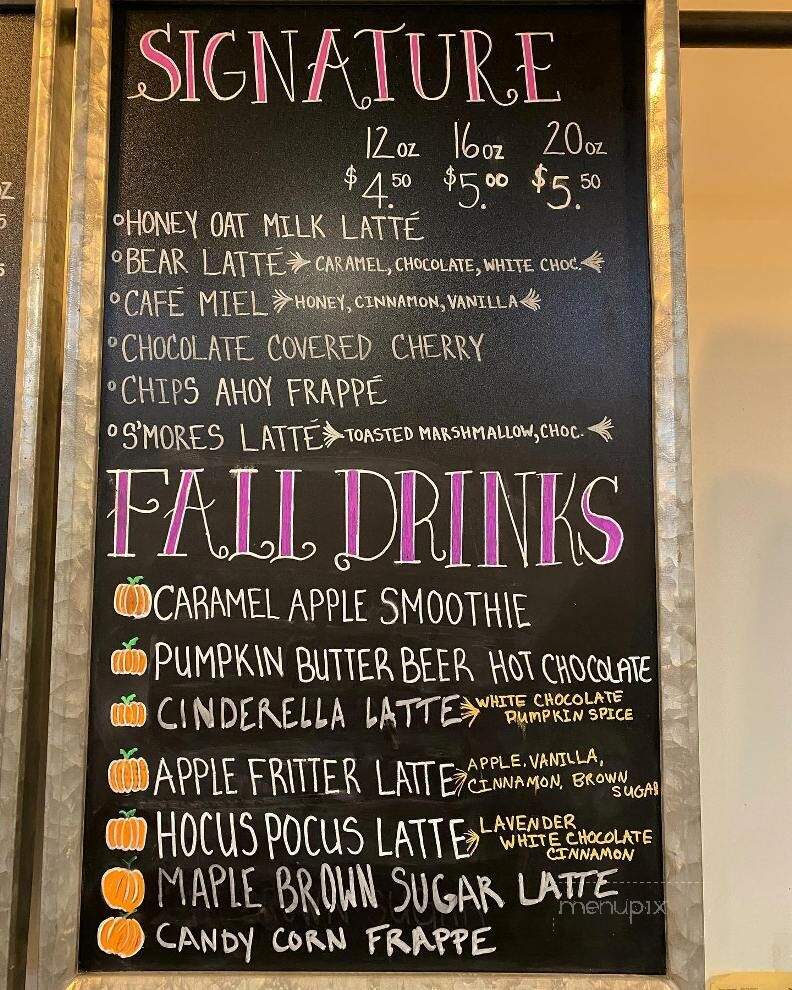 SIGNATURE
12oz 16oz 20oz
$4.50 $5.00 $5.50
HONEY OAT MILK LATTÉ
BEAR LATTÉ CARAMEL, CHOCOLATE, WHITE CHOC.
CAFÉ MIEL HONEY, CINNAMON, VANILLA
CHOCOLATE COVERED CHERRY
CHIPS AHOY FRAPPÉ
S'MORES LATTÉ TOASTED MARSHMALLOW, CHOC.
FALL DRINKS
CARAMEL APPLE SMOOTHIE
PUMPKIN BUTTER BEER HOT CHOCOLATE
CINDERELLA LATTE WHITE CHOCOLATE
PUMPKIN SPICE
APPLE FRITTER LATTE APPLE, VANILLA,
CINNAMON, BROWN
SUGAR
HOCUS POCUS LATTE LAVENDER
WHITE CHOCOLATE
CINNAMON
MAPLE BROWN SUGAR LATTE
CANDY CORN FRAPPE
menupix